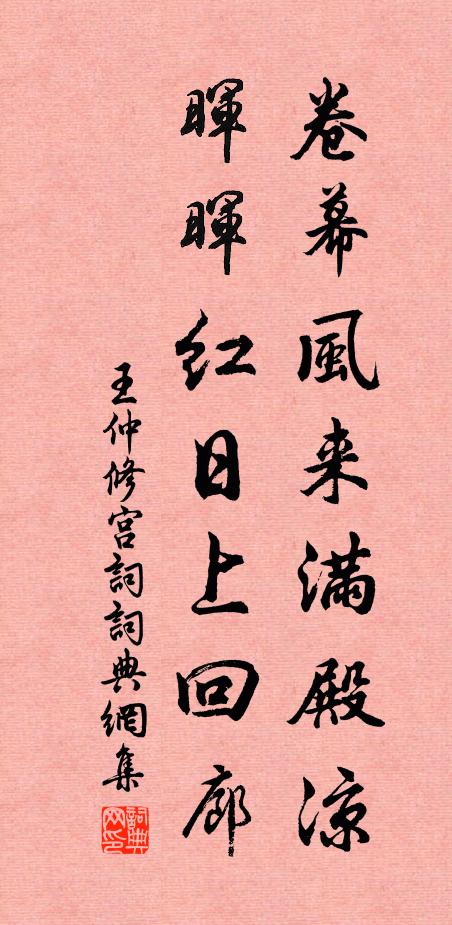 卷幕風来满殿涼
暉暉红日上回廊
王仲修宫詞詞典網集
詞典网印